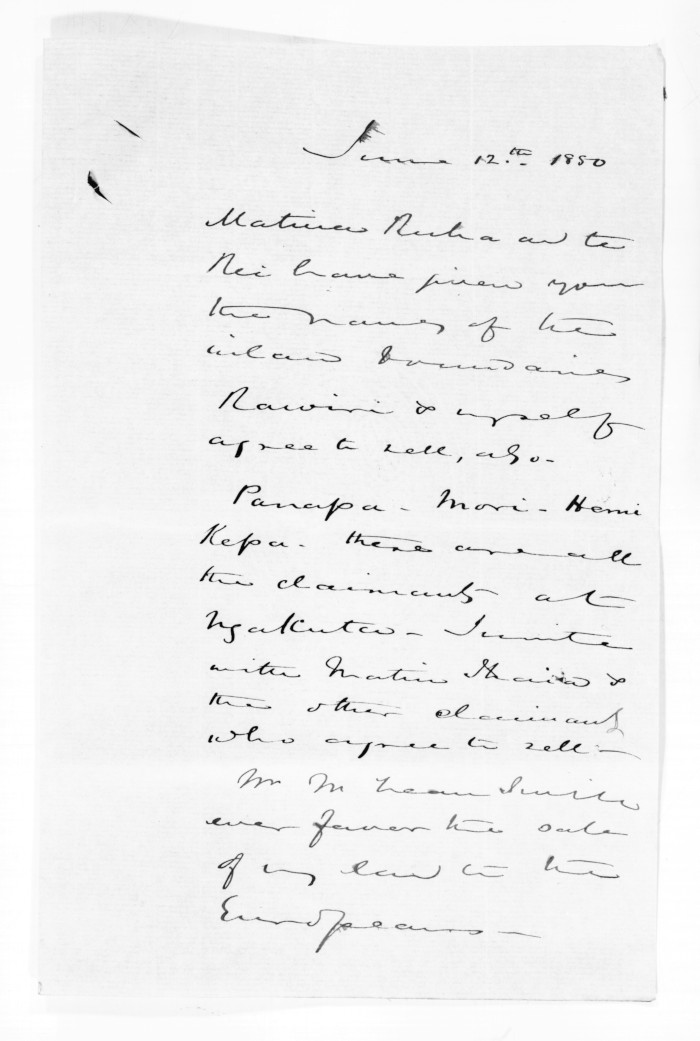 June 12.th 1850
Matiu Ruka and te
Rei have given you
the names of the
inland boundaries
Rawiri & myself
agree to sell, also-
Panapa - Mori - Hemi
Kepa. these are all
the claimants at
Ngakuta - I write
with Matiu &
the other claimants
who agree to sell -
Mr McLean I will
ever favor the sale
of my land to the
Europeans -